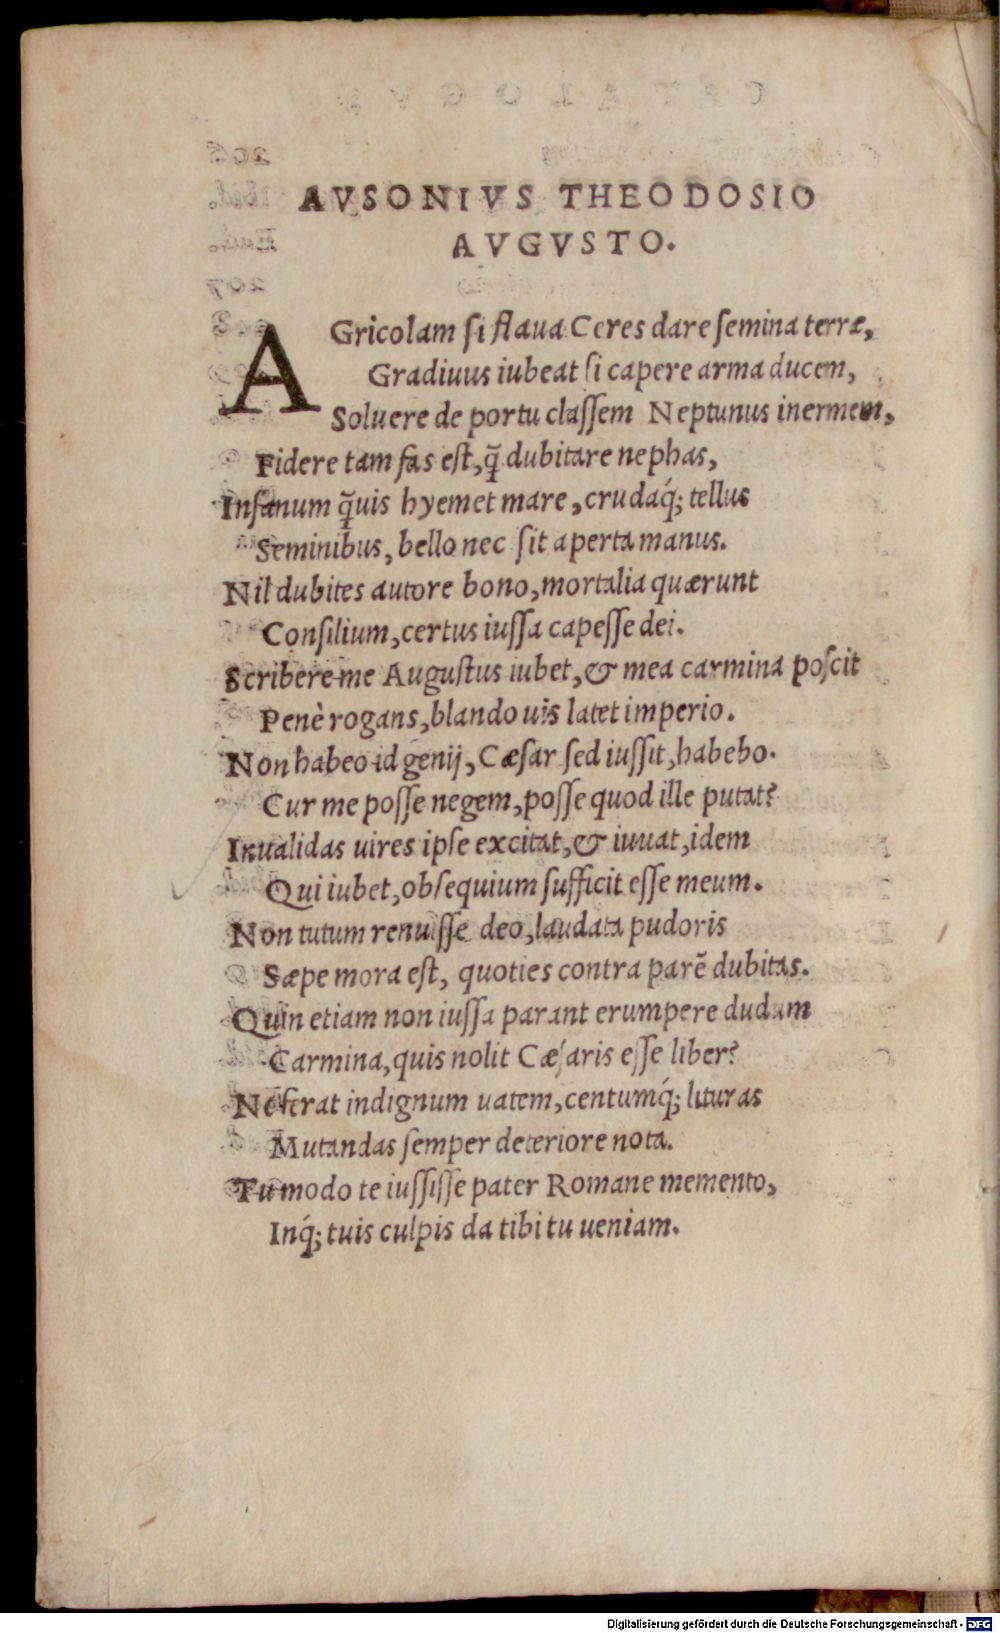 AVSONIVS THEODOSIO
AVGVSTO.
AGricolam ſi flaua Ceres dare ſemina terræ,
Gradiuus iubeat ſi capere arma ducem,
Soluere de portu claſſem Neptunus inermem,
Fidere tam fas eſt, q̃ dubitare nephas,
Inſanum q̃uis hyemet mare, crudaq́; tellus
Seminibus, bello nec ſit aperta manus.
Nil dubites autore bono, mortalia quærunt
Conſilium, certus iuſſa capeſſe dei.
Scribere me Auguſtus iubet, & mea carmina poſcit
Penè rogans, blando uis latet imperio.
Non habeo id genij, Cæſar ſed iuſſit, habebo.
Cur me poſſe negem, poſſe quod ille putat?
Inualidas uires ipſe excitat, & iuuat, idem
Qui iubet, obſequium ſufficit eſſe meum.
Non tutum renuiſſe deo, laudata pudoris
Sæpe mora eſt, quoties contra parẽ dubitas.
Quin etiam non iuſſa parant erumpere dudum
Carmina, quis nolit Cæſaris eſſe liber?
Ne ferat indignum uatem, centumq́; lituras
Mutandas ſemper deteriore nota.
Tu modo te iuſſiſſe pater Romane memento,
Inq́; tuis culpis da tibi tu ueniam.
Digitalisierung gefördert durch die Deutsche Forschungsgemeinschaft - DFG